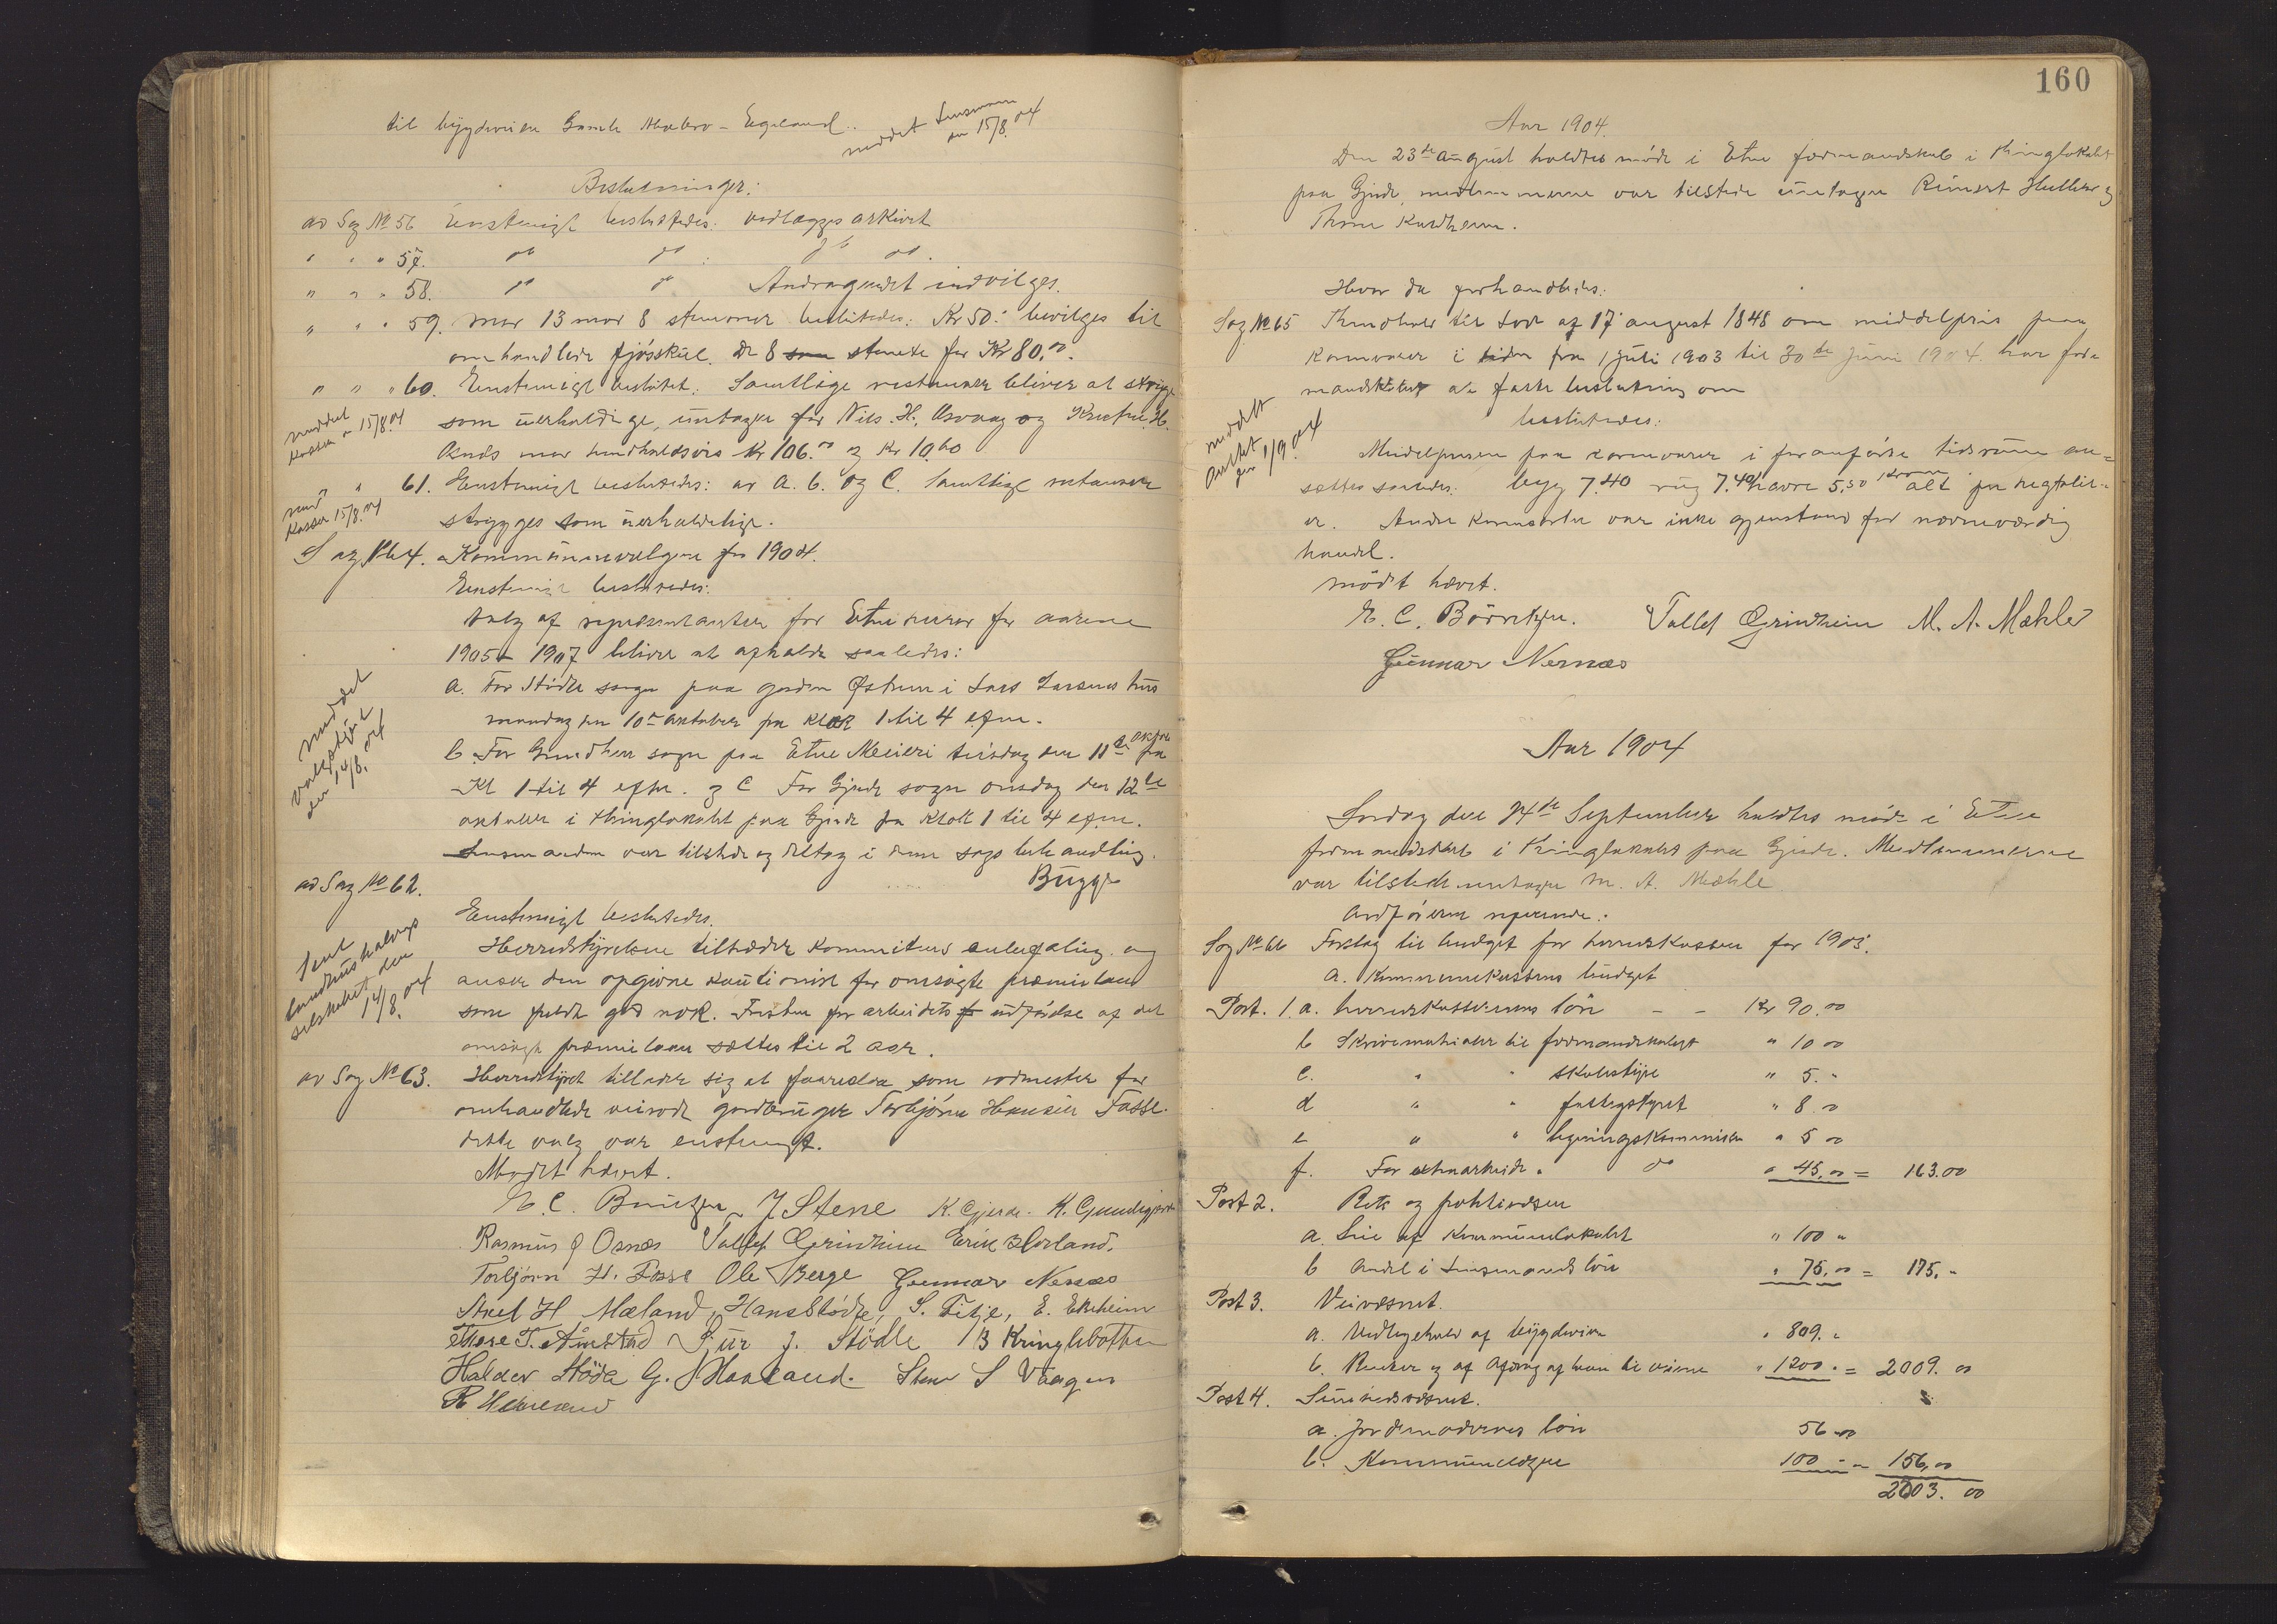 til bygdeveien Gamle - Egeland.
meddelt lensmann
den 15/8. 04
Beslutninger:
ad Sag No 56 Enstemigt beslutedes: vedlægges arkivet
" " " 57. do do : do do.
" " " 58. do do Andragendet indvilges.
" " " 59. Mod 13 mod 8 stemmer beslutedes: Kr 50.- bevilges til
omhandlede fjösskul. De 8 som stemte for Kr 80.00.
" " " 60. Enstemigt beslutet: Samtlige restanser bliver at stryge
meddelt
Kassen den 15/8. 04
som uerholdelige, undtagen for Nils H. og H.
mod henholdsvis Kr 106.00 og Kr 10.60
" " 61. Enstemigt beslutedes: ad A. b. og C. Samtlige restanser
med
Kasser 15/8. 04
stryges som uerholdelige.
Sag No 64. Kommunevalgene for 1904.
Enstemigt beslutedes:
Valg af repræsentanter for Etne herred for aarene
1905 - 1907 bliver at afholde saaledes:
a. For Stödle sogn paa garden Østrem i Lars Larsens hus
mandag den 10de oktober fra Klok 1 til 4 efm.
b. For Grindheim sogn paa Etne Meieri tirsdag den 11te oktbr fra
Kl 1 til 4 efm. og C For Gjerde sogn onsdag den 12te
oktober i thinglokalet paa Gjerde fra Klok 1 til 4 efm.
Lensmanden var tilstede og deltog i denne sags behandling.
Bugge
meddelt
valgstyret
den 14/8. 04
ad Sag No 62.
Enstemigt beslutedes.
Herredstyrelsen tiltræder kommiteens anbefaling og
anser den opgivne kautionist for omsögte præmielaan
som fuldt god nok. Fristen for arbeidets udförelse af det
omsögte præmielaan sættes til 2 aar.
Sent
landhusholdnings
selskabet den
14/8. 04
ad Sag No 63. Herredstyret tillader sig at foareslaa som rodmester for
omhandlede veirode gardbruger Torbjörn Hansen Fosse.
dette valg var enstemigt.
Mödet hævet.
E. C. Börretzen J Stene K. Gjerde. K. Grindsgjerd
Rasmus J Osnes Tallef Grindheim Erik Norland.
Torbjörn H. Fosse Ole Berge Gunnar Nernæs
Axel H Mæland, Hans Stödle, S. Fitje, E. Ekrheim
Thore T. Aimstad Siur J. Stödle B Kringlebotten
Halder Stöde G. J Haaland. Sten S Vaagen
R Hetleland
160
Aar 1904.
Den 23de august holdtes möde i Etne formandskab i thinglokalet
paa Gjerde, medlemmerne var tilstede undtagen Reinert Hetleland og
Thore
Hvor da forhandledes:
Sag No 65 Henhold til Lov af 17 august 1848 om middelpris paa
Kornvarer i tiden fra 1 juli 1903 til 30te Juni 1904. har for=
mandskabet at fatte beslutning om
beslutedes:
meddelt
Amtet
den 1/9. 04
Middelprisen paa kornvarer i foranförte tidsrum an=
sættes saaledes: byg 7.40 rug 7.40 havre 5.50 kroner alt pr hektolit-
er. Andre kornsorter var ikke gjenstand for nævneværdig
handel.
mödet hævet.
E. C. Börretzen. Tallef Grindheim M. A. Mæhle
Gunnar Nernæs
Aar 1904
Lördag den 24de September holdtes möde i Etne
formandskab i thinglokalet paa Gjerde. Medlemmerne
var tilstede undtagen M. A. Mæhle
Ordföreren refererede:
Sag No 66 Forslag til budget for herredskassen for 1905.
a. Kommunekassens budget
Post. 1. a. herredskassererens lön - - Kr 90.00
b Skrivematrialer til formandskabet " 10 00
C. " " skolestyre " 5. "
d " " fattigstyret " 8 00
e " " ligningskommisen " 5 00
f. For extraarbeide " do " 45.00 = 163.00
Post 2. Rets og politivæsen
a. Leie af kommunelokalet " 100 "
b Andel i Lensmandens lön " 75.00 = 175.-
Post 3. Veivæsnet.
a. Vedligehold af bygdeveie " 809. "
b. Renter og af Afdrag af laan til veiene " 1200. = 2009. 00
Post 4. Sundhedsvæsnet.
a. Jordemodernes lön 56 00
b. Kommunelæge 100 - = 156,00
2603. 00